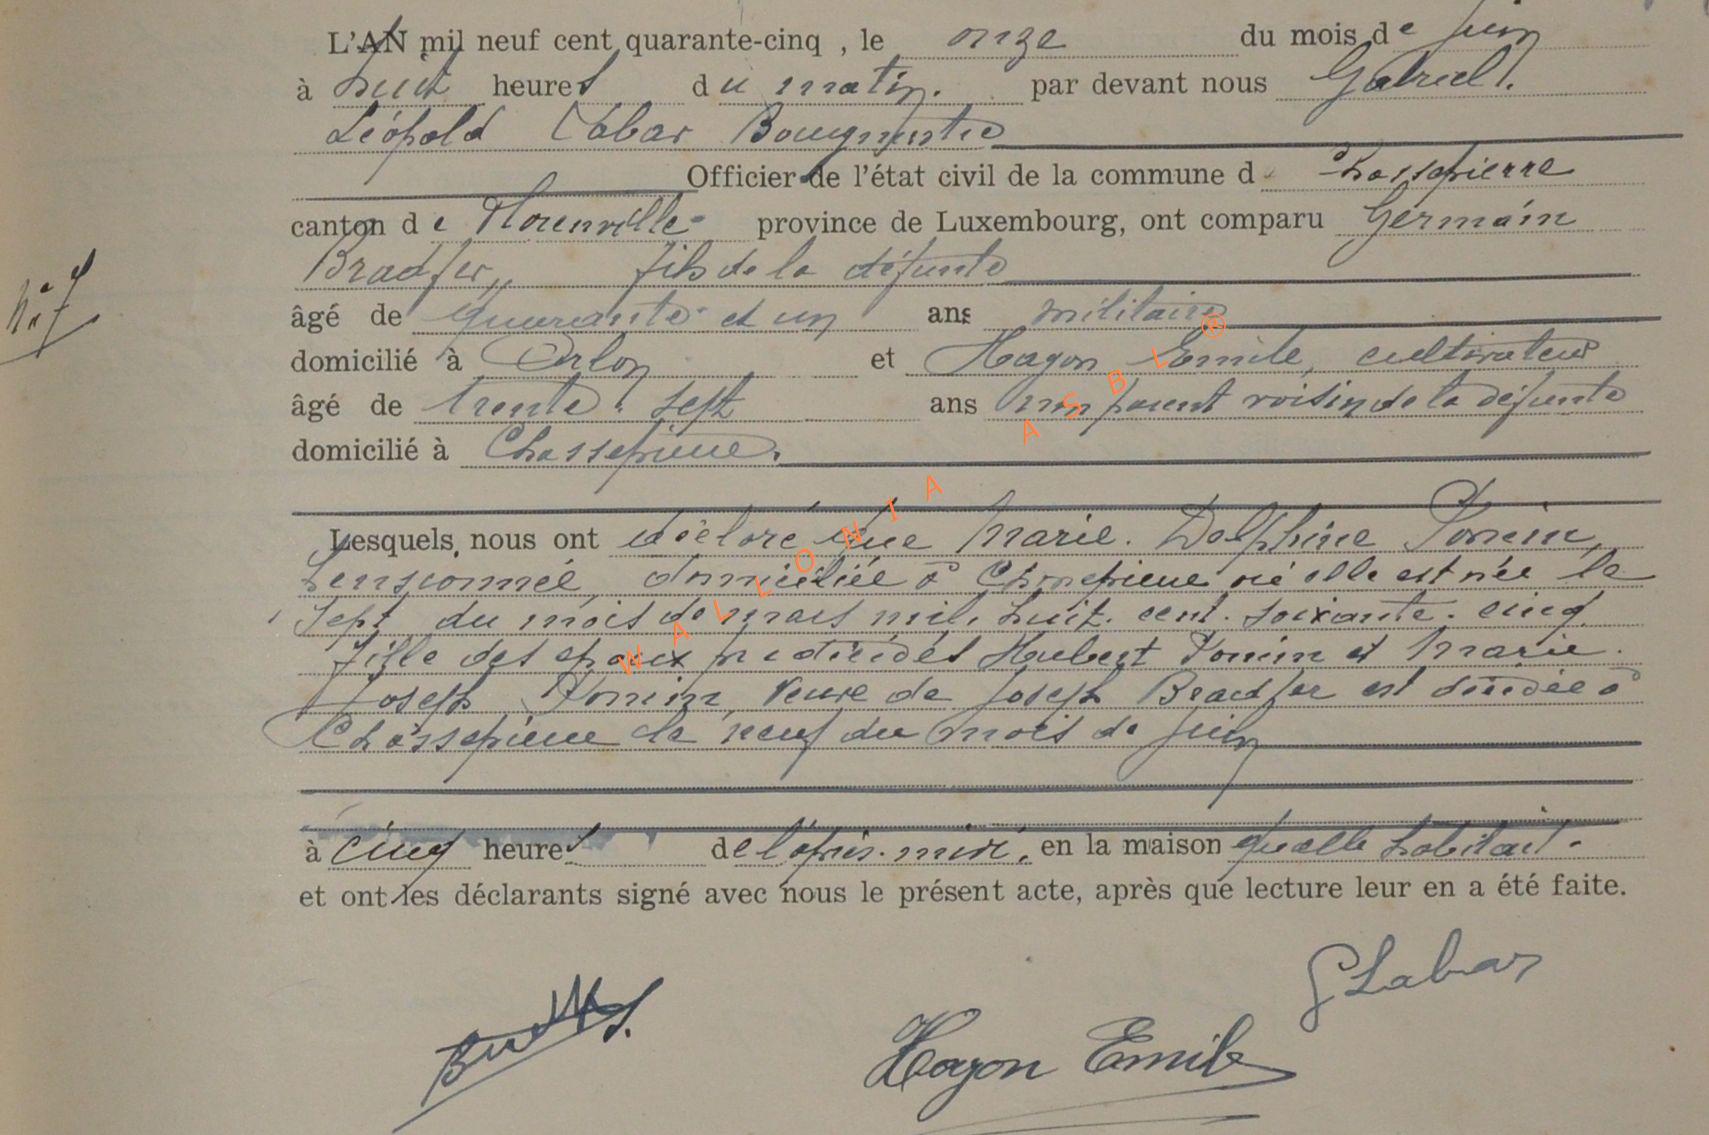 L'AN mil neuf cent quarante-cinq , le onze du mois de juin
à huit heures du matin. par devant nous Gabriel.
Léopold Labar Bourgmestre
Officier de l'état civil de la commune d Chassepierre
canton de Florenville province de Luxembourg, ont comparu Germain
Bradfer, fils de la défunte
âgé de quarante et un ans militaire
domicilié à Arlon et Hagon Emile, cultivateur
âgé de trente-sept ans non parent voisin de la défunte
domicilié à Chassepierre.
N° 7
Lesquels nous ont déclaré que Marie. Delphine Ponsin,
pensionnée, domiciliée à Chassepierre où elle est née le
sept du mois de mars mil. huit. cent. soixante. cinq.
fille des époux prédécédés Hubert Ponsin et Marie.
Joseph Ponsin, veuve de Joseph Bradfer est décédée à
Chassepierre le neuf du mois de juin
à cinq heures de l'après-midi, en la maison qu'elle habitait.
et ont les déclarants signé avec nous le présent acte, après que lecture leur en a été faite.
G Labar
Hagon Emile
WALLONIA ASBL ®